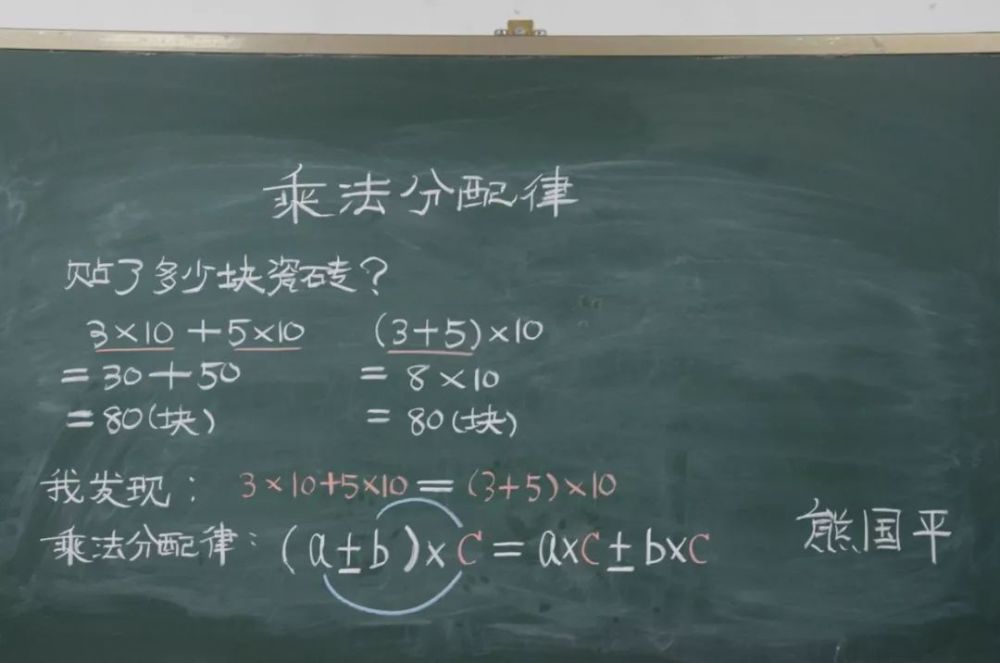 乘法分配律
贴了多少块瓷砖?
3×10+5×10 (3+5)×10
=30+50 =8×10
=80(块) =80(块)
我发现: 3×10+5×10=(3+5)×10
乘法分配律: (a±b)×C=a×C±b×C
熊国平